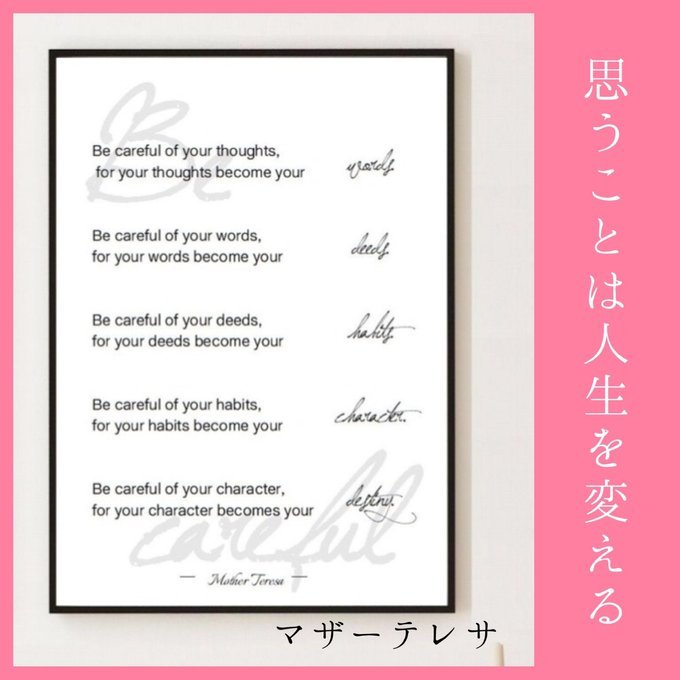 Be careful
Be careful of your thoughts,
for your thoughts become your words.
Be careful of your words,
for your words become your deeds.
Be careful of your deeds,
for your deeds become your habits.
Be careful of your habits,
for your habits become your character.
Be careful of your character,
for your character becomes your destiny.
Mother Teresa
マザーテレサ
思うことは人生を変える